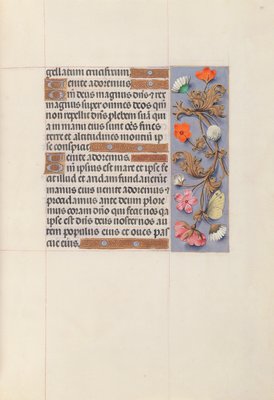 gellatum crucifixum.
Venite adoremus
Qm̄ deus magnus dn̄s et rex
magnus super omnes deos qm̄
non repellit dn̄s plebem suā qui
a in manu eius sunt oēs fines
terre et altitudines montiū ip
se conspicit.
Venite adoremus
Qm̄ ipsius est mare et ipse fe
cit illud et aridam fundauerūt
manus eius uenite adoremus et
procidamus ante deum plore
mus coram dn̄o qui fecit nos q̄a
ipse est dn̄s deus noster nos au
tem populus eius et oues pas
cue eius.